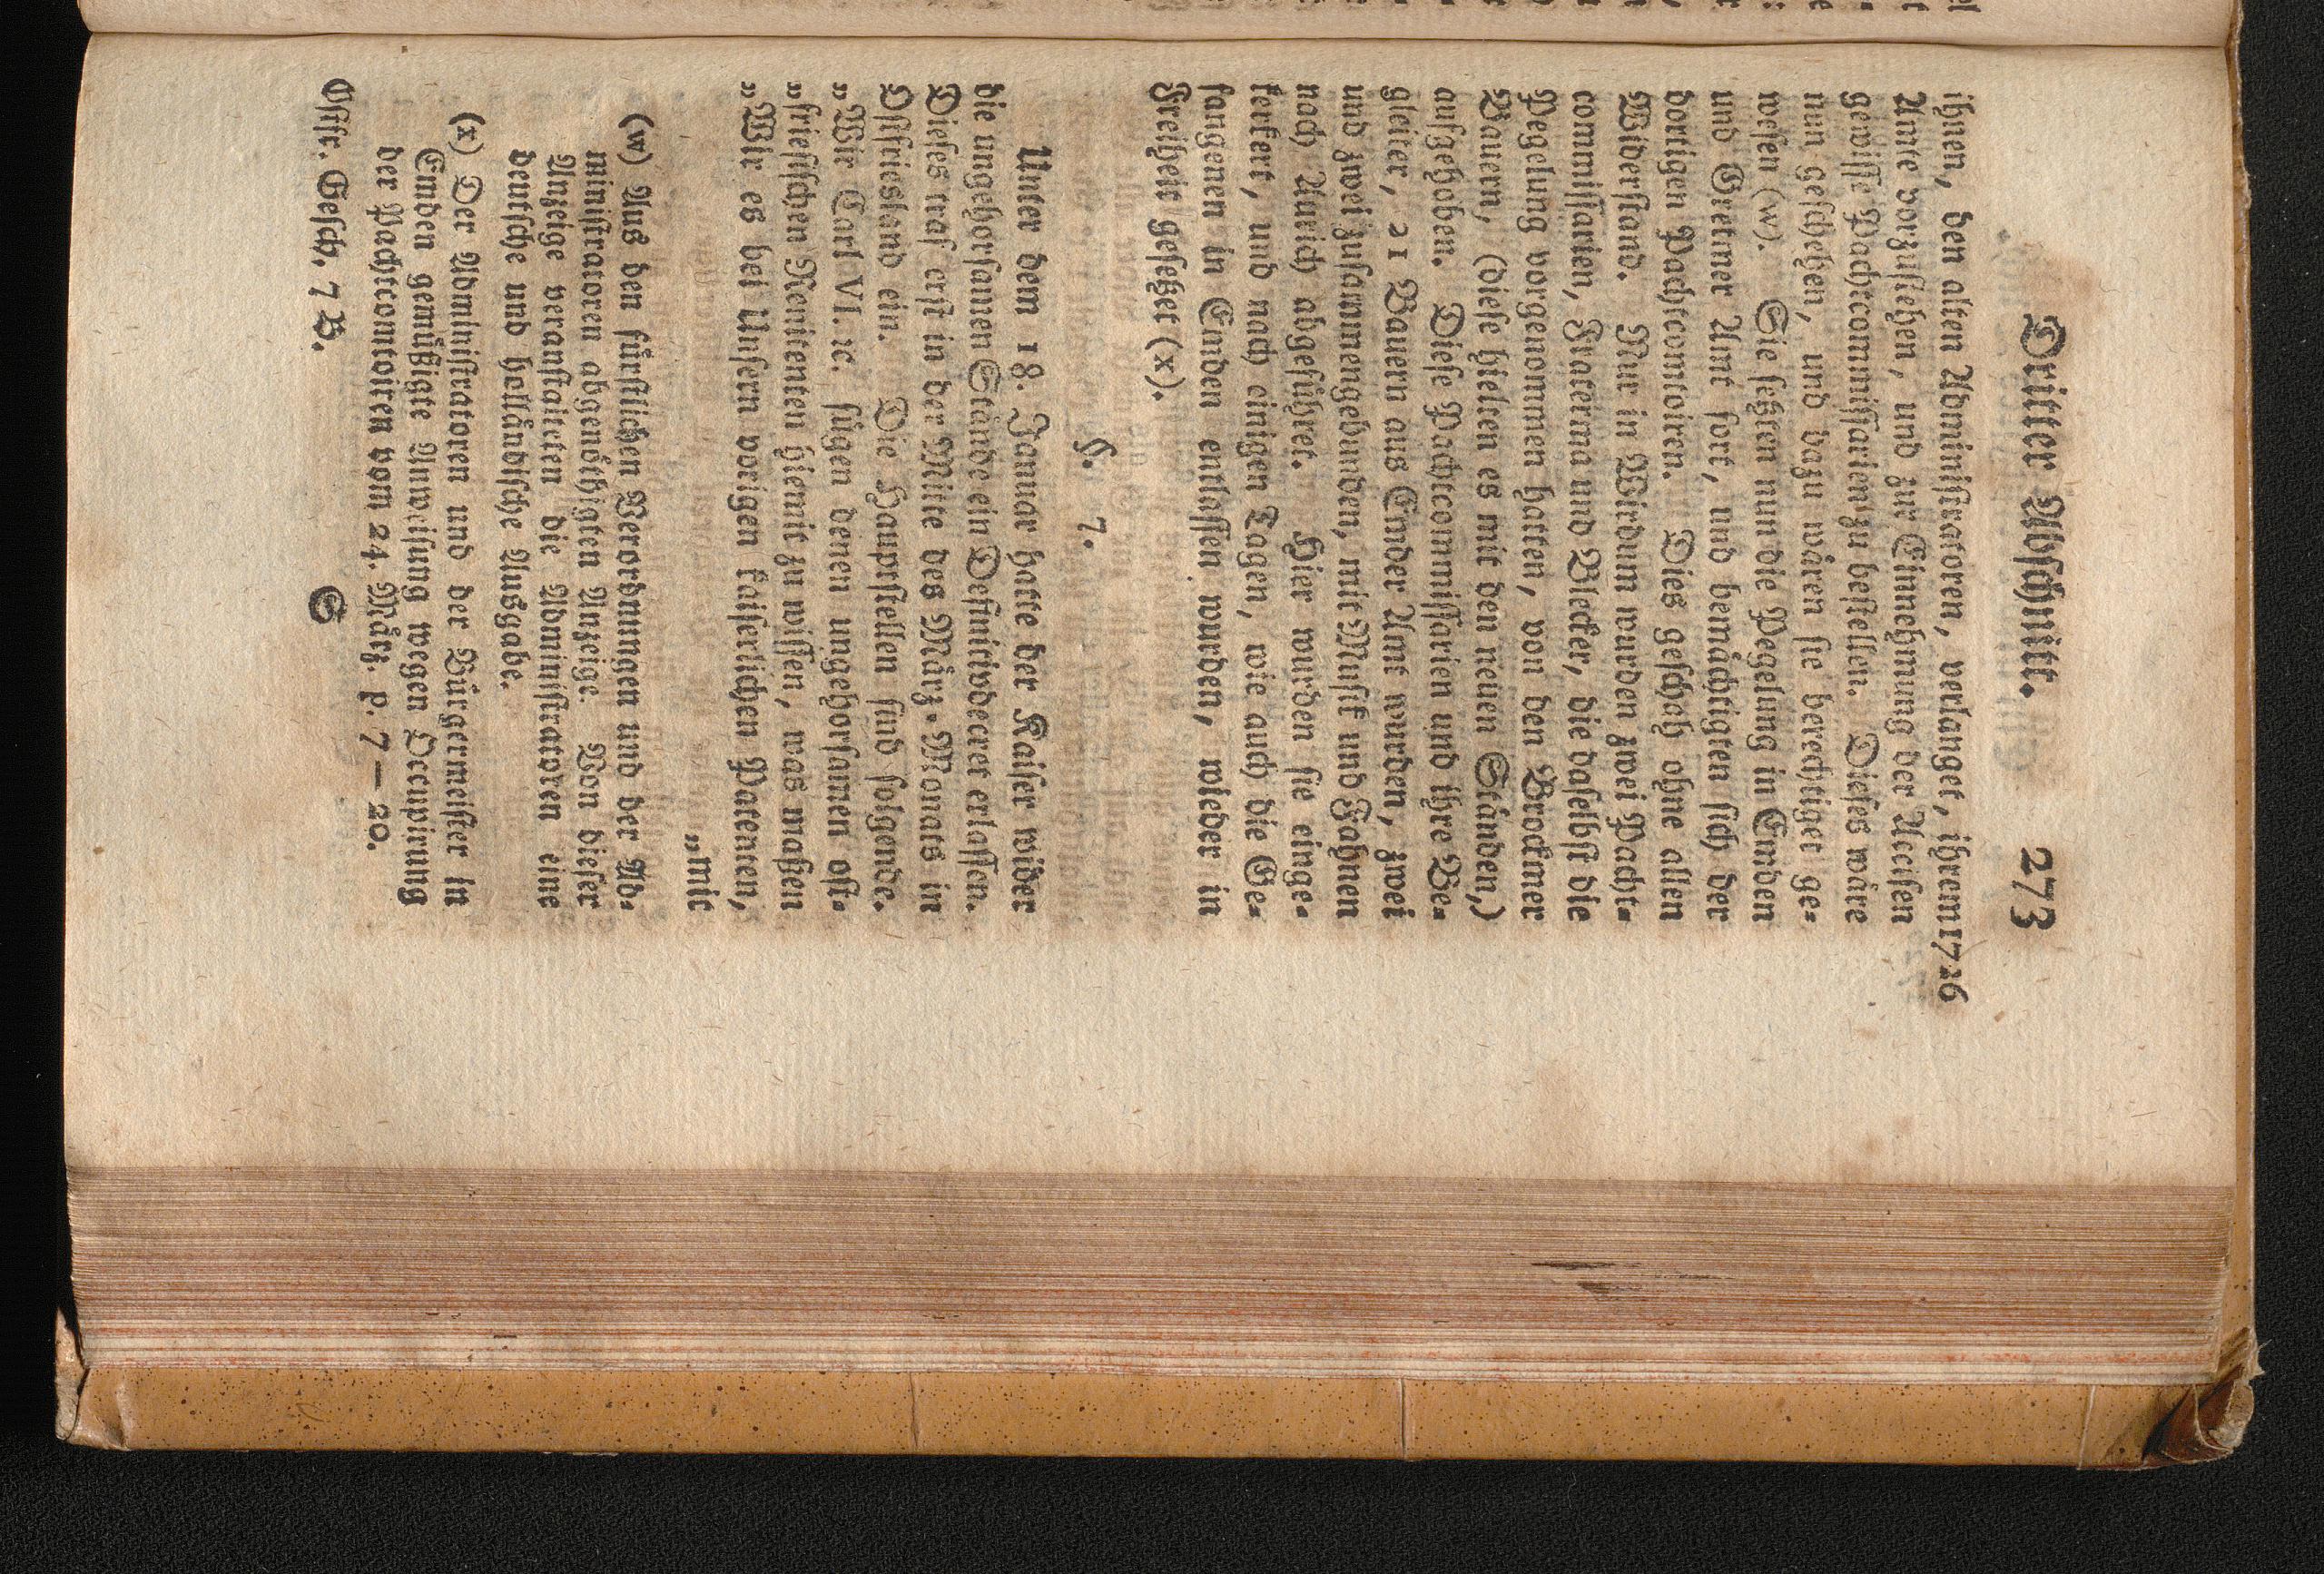 Dritter Abschnitt. 273
ihnen, den alten Administratoren, verlanget, ihrem 1726
Amte vorzustehen, und zur Einnehmung der Accisen
gewisse Pachtcommissarien zu bestellen. Dieses wäre
nun geschehen, und dazu wären sie berechtiget ge-
wesen (w). Sie setzten nun die Pegelung in Emden
und Gretmer Amt fort, und bemächtigten sich der
dortigen Pachtcomtoiren. Dies geschah ohne allen
Widerstand. Nur in Wirdum wurden zwei Pacht-
commissarien, Fraterma und Blecker, die daselbst die
Pegelung vorgenommen hatten, von den Brockmer
Bauern, (diese hielten es mit den neuen Ständen,)
aufgehoben. Diese Pachtcommissarien und ihre Be-
gleiter, 21 Bauern aus Emder Amt wurden, zwei
und zwei zusammengebunden, mit Musik und Fahnen
nach Aurich abgeführet. Hier wurden sie einge-
kerkert, und nach einigen Tagen, wie auch die Ge-
fangenen in Emden entlassen wurden, wieder in
Freiheit gesetzet (x).
§. 7.
Unter dem 18. Januar hatte der Kaiser wider
die ungehorsamen Stände ein Definitivdecret erlassen.
Dieses traf erst in der Mitte des März-Monats in
Ostfriesland ein. Die Hauptstellen sind folgende.
„Wir Carl VI. ꝛc. fügen denen ungehorsamen ost-
„friesischen Renitenten hiemit zu wissen, was maßen
„Wir es bei Unsern vorigen kaiserlichen Patenten,
„mit
(w) Aus den fürstlichen Verordnungen und der Ad-
ministratoren abgenöthigten Anzeige. Von dieser
Anzeige veranstalteten die Administratoren eine
deutsche und holländische Ausgabe.
(x) Der Administratoren und der Bürgermeister in
Emden gemüßigte Anweisung wegen Occupirung
der Pachtcontoiren vom 24. März. p. 7—20.
Ostfr. Gesch. 7 B. S